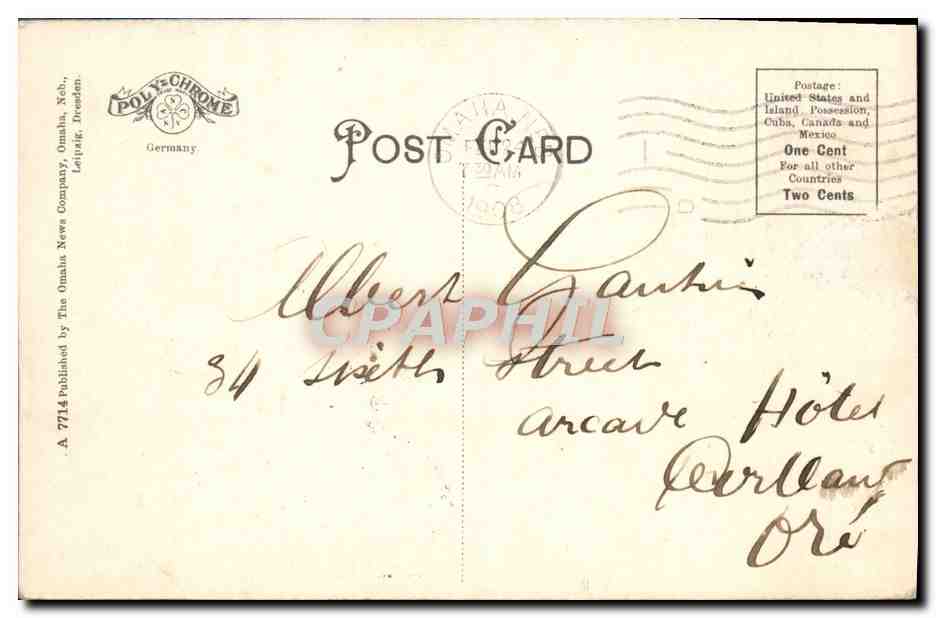 POLY-CHROME
Germany.
POST CARD
OMAHA
AM
1908
Postage:
United States and
Island Possession,
Cuba, Canada and
Mexico
One Cent
For all other
Countries
Two Cents
A 7714 Published by The Omaha News Company, Omaha, Neb.,
Leipzig, Dresden.
Albert
34 sixth Street
arcade Hôtel
CPAPHIL